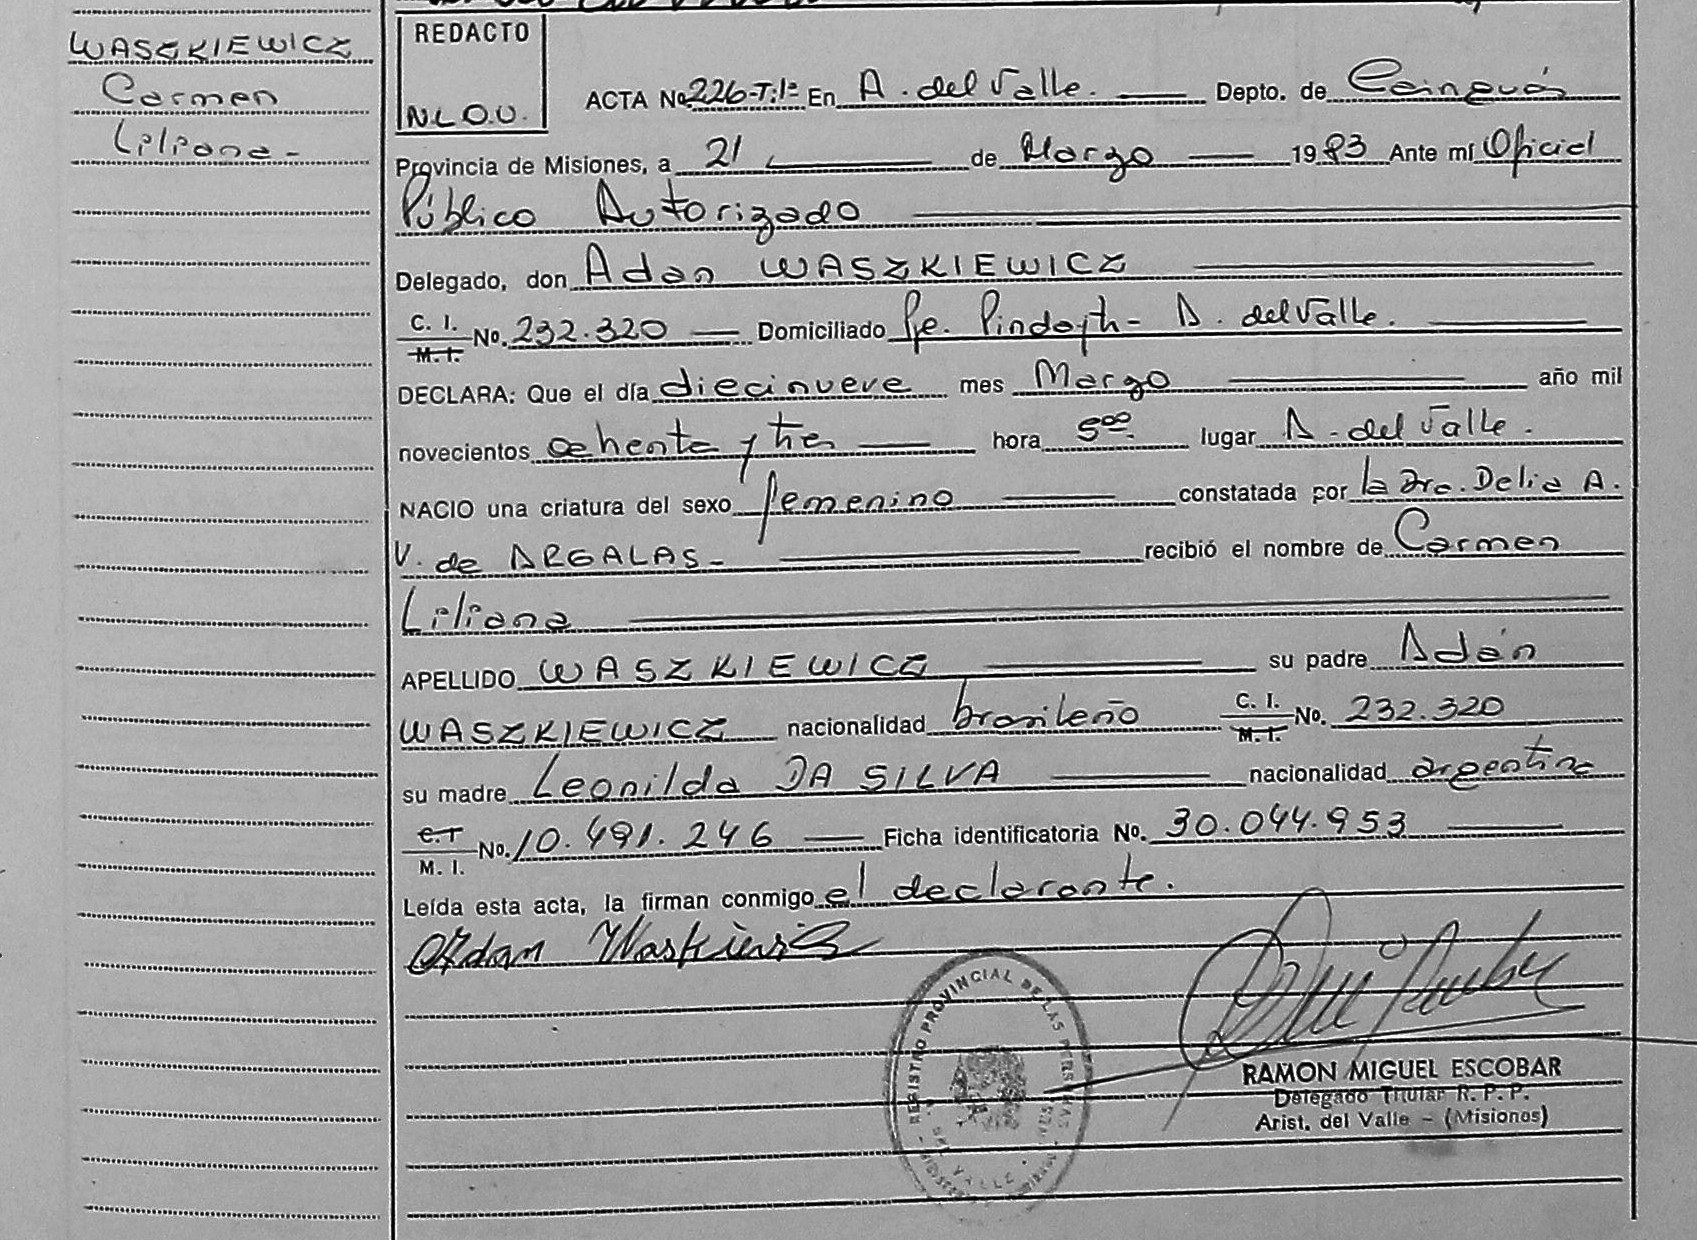 WASZKIEWICZ
Carmen
Liliana-
REDACTO
N.L.O.U.
ACTA No 226-T:1º En A. del Valle. Depto. de Cainguás
Provincia de Misiones, a 21 de Marzo 1983 Ante mí Oficial
Público Autorizado
Delegado, don Adan WASZKIEWICZ
C. I.
M. I. No. 232.320 Domiciliado Pje. Pindayth- A. del Valle.
DECLARA: Que el día diecinueve mes Marzo año mil
novecientos ochenta y tres hora 5⁰⁰. lugar A. del Valle.
NACIO una criatura del sexo femenino constatada por la Dra. Delia A.
V. de ARGALAS- recibió el nombre de Carmen
Liliana
APELLIDO WASZKIEWICZ su padre Adán
WASZKIEWICZ nacionalidad brasileño C. I.
M. I. No. 232.320
su madre Leonilda DA SILVA nacionalidad argentina
C. I.
M. I. No. 10.491.246 Ficha identificatoria No. 30.044.953
Leída esta acta, la firman conmigo el declarante.
Adan Waskiewicz
REGISTRO PROVINCIAL DE LAS PERSONAS
DEL VALLE
RAMON MIGUEL ESCOBAR
Delegado Titular R. P. P.
Arist. del Valle - (Misiones)